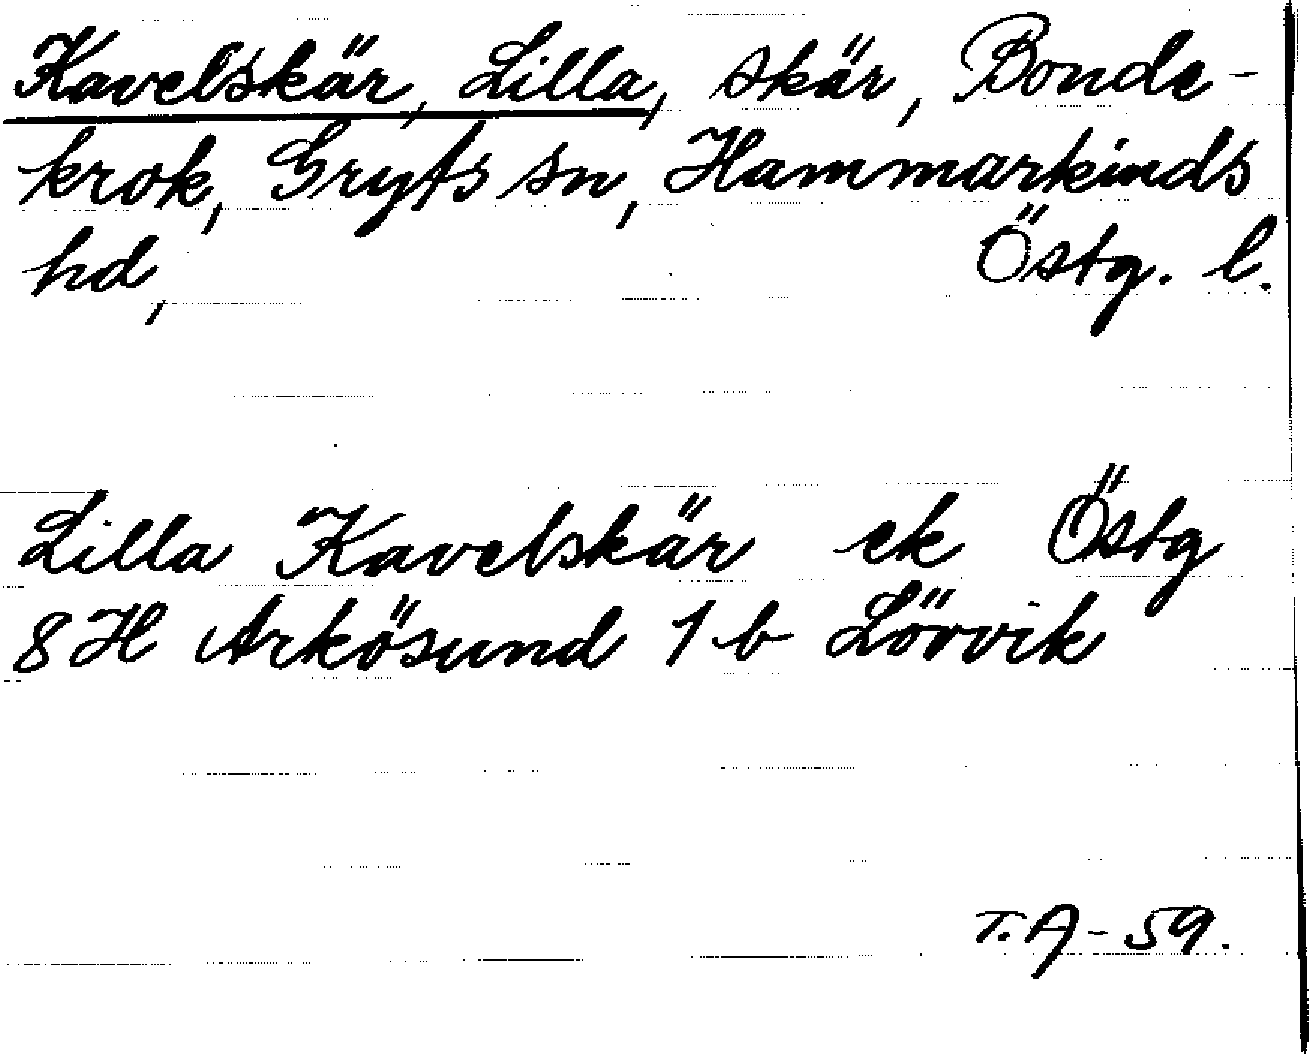 Kavelskär, Lilla, skär, Bonde-
krok, Gryts sn, Hammarkinds
hd, Östg. l.
Lilla Kavelskär ek Östg
8H Arkösund 1b Lövvik
T. A-59.